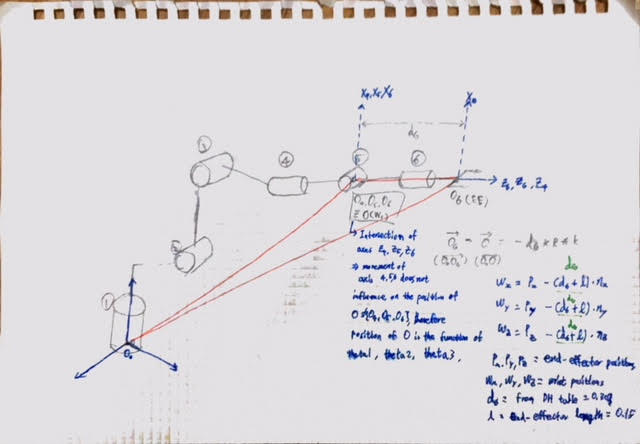 X4, X5, X6
X6
d6
3
4
5
6
Z5, Z6, Z4
O6 (EE)
O4, O5, O6
≡ O(Wc)
2
1
O0
↳ Intersection of
axis Z4, Z5, Z6
⇒ movement of
axis 4.5.6 does not
influence on the position of
therefore
Position of O is the function of
theta1, theta2, theta3,
= -d6 * R * k
d6
Wx = Px - (d6 + l) · nx
d6
Wy = Py - (d6 + l) · ny
d6
Wz = Pz - (d6 + l) · nz
Px, Py, Pz = end-effector positions
Wx, Wy, Wz = wrist positions
d6 = from DH table =
l = end-effector length =